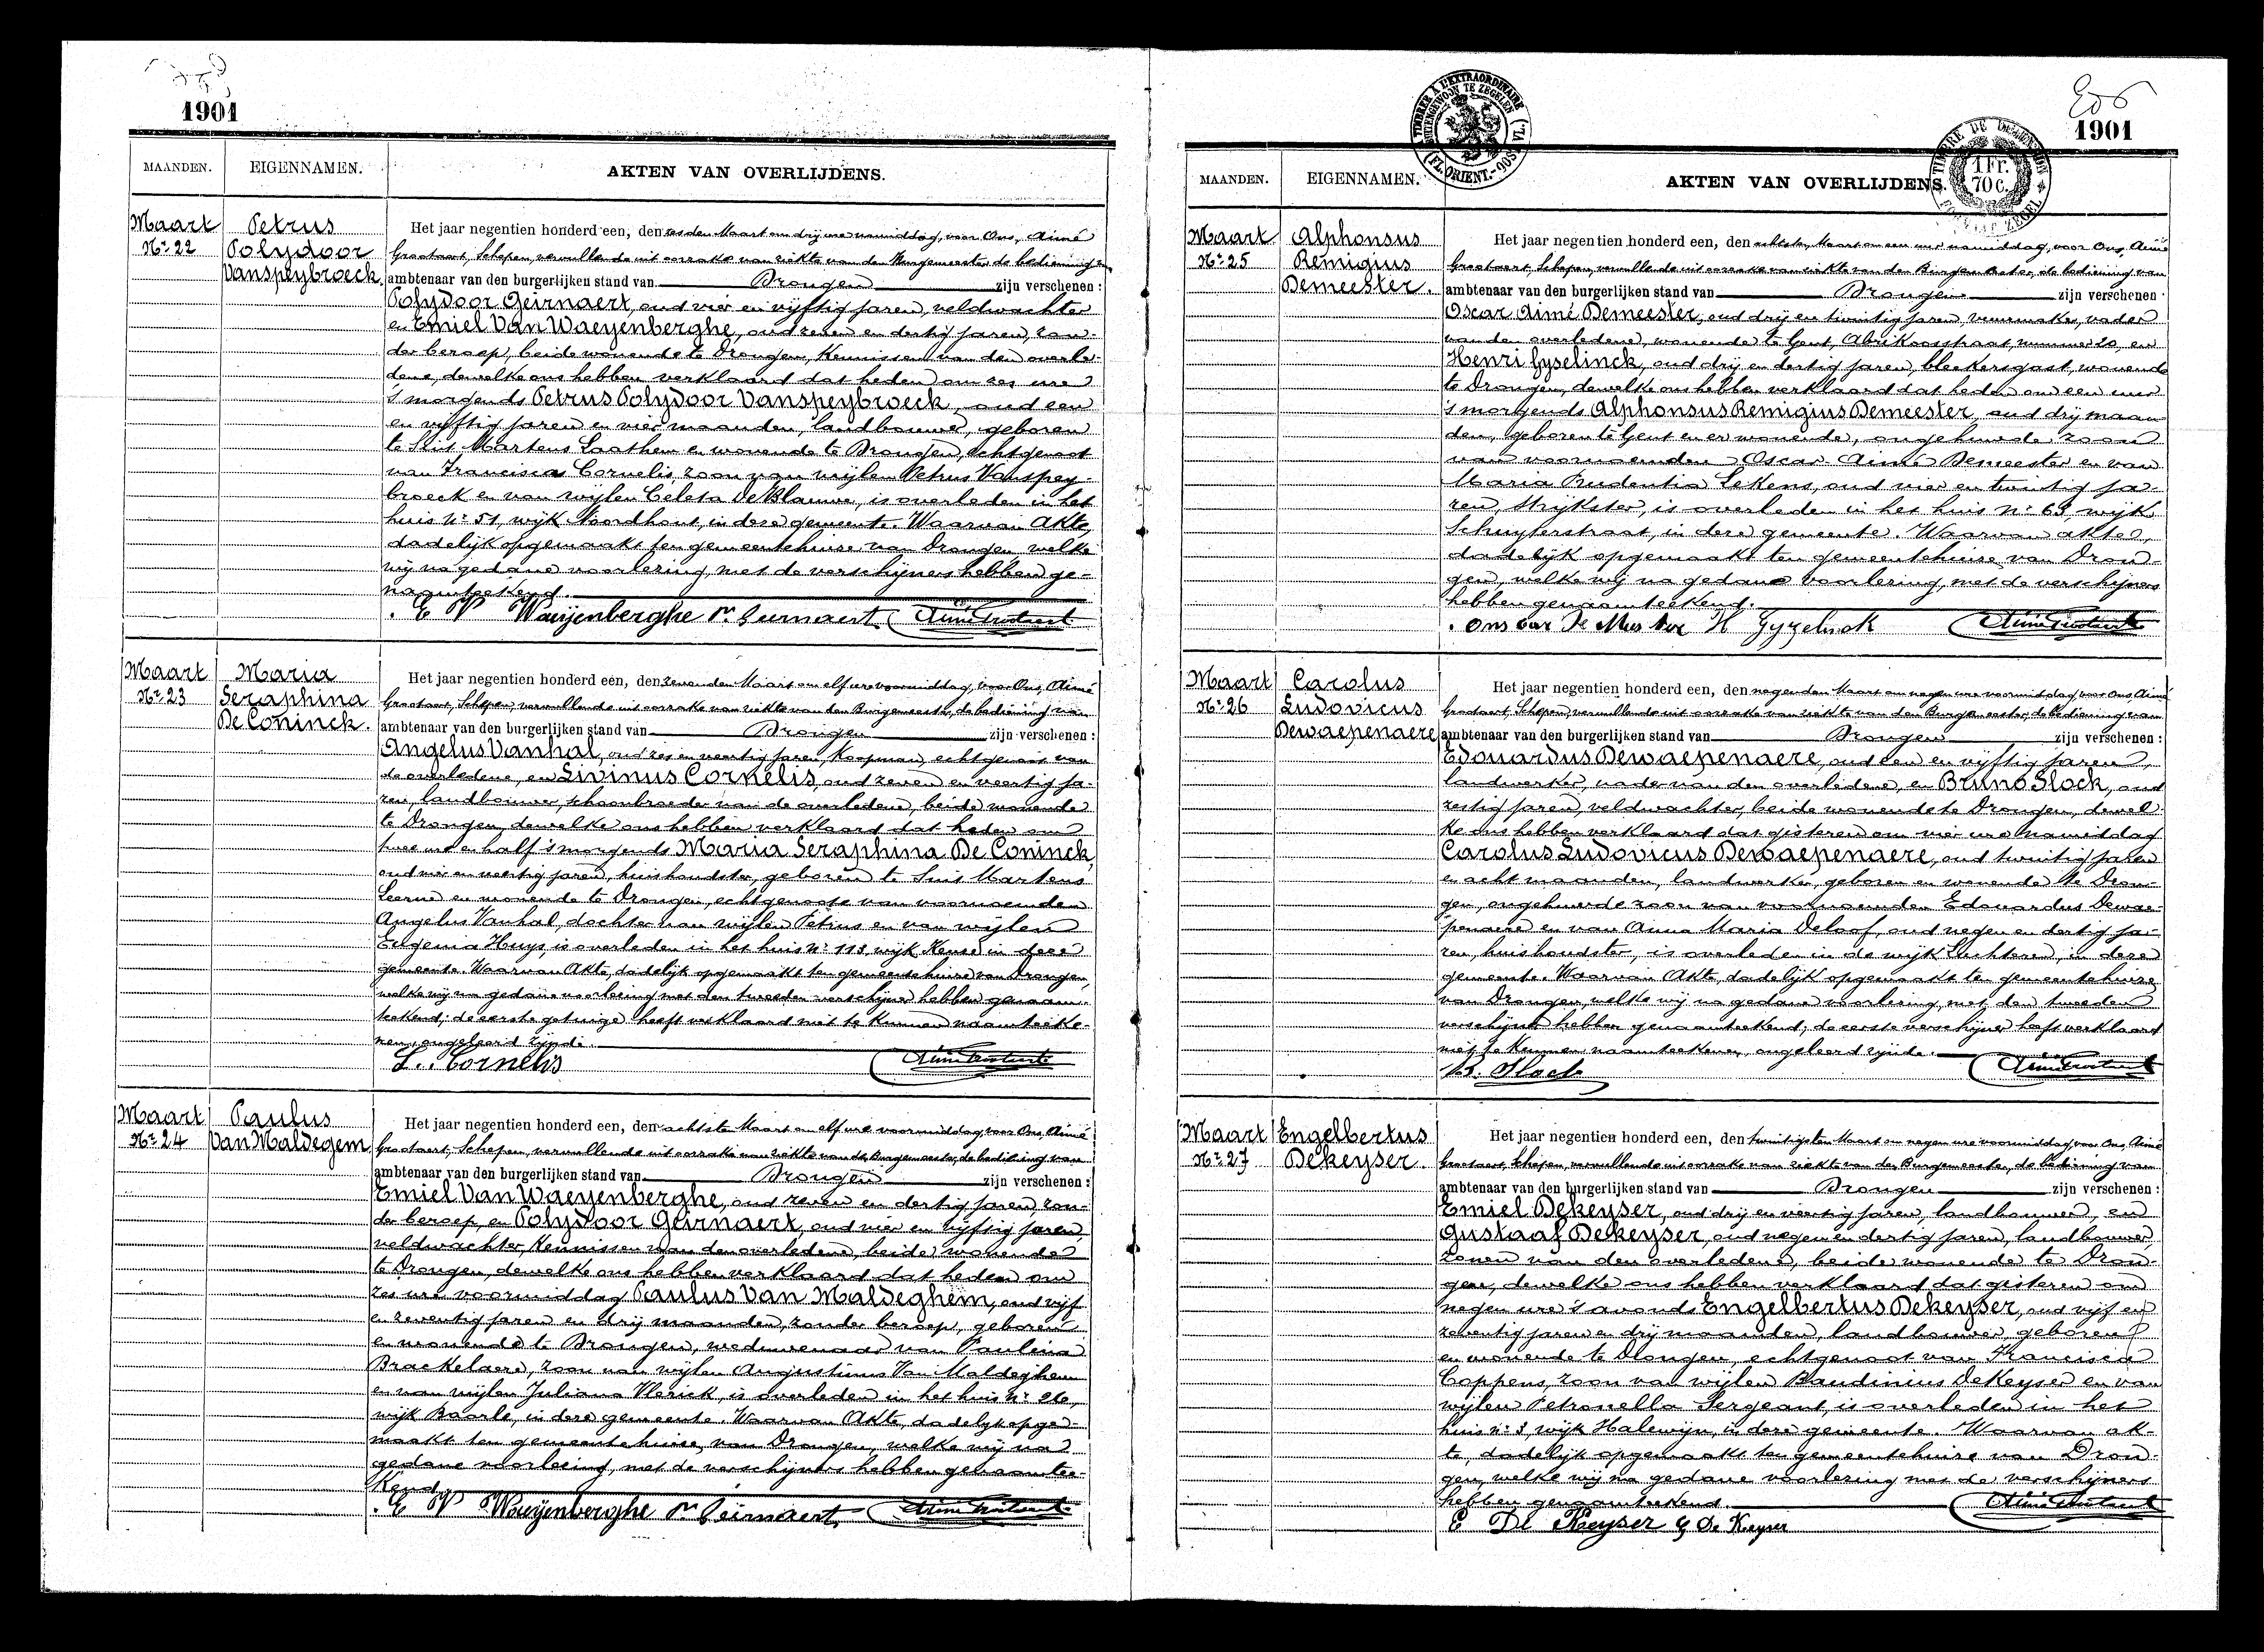 1901
MAANDEN. EIGENNAMEN. AKTEN VAN OVERLIJDENS.
Maart Petrus
Nr 22 Polydoor
Vanspeybroeck
Het jaar negentien honderd een, den zesden Maart om drij ure namiddag, voor Ons, Aimé
Grootaert, Schepen, vervullende uit oorzake van ziekte van den Burgemeester, de bediening van
ambtenaar van den burgerlijken stand van Drongen zijn verschenen :
Polydoor Geirnaert, oud vier en vijftig jaren, veldwachter
en Emiel Van Waeyenberghe, oud zeven en dertig jaren, zon-
der beroep, beide wonende te Drongen, Kennissen van den overle-
dene, dewelke ons hebben verklaard dat heden om zes ure
's morgends Petrus Polydoor Vanspeybroeck, oud een
en vijftig jaren en vier maanden, landbouwer, geboren
te Sint Martens Laathem en wonende te Drongen, echtgenoot
van Francisca Cornelis, zoon van wijlen Petrus Vanspey-
broeck en van wijlen Celesta De Blauwe, is overleden in het
huis Nr 51, wijk Noordhout, in deze gemeente. Waarvan Akte,
dadelijk opgemaakt ten gemeentehuise van Drongen, welke
wij na gedane voorlezing, met de verschijners hebben ge-
naamteekend.
E V Waeijenberghe Pr Geirnaert
Maart Maria
Nr 23 Seraphina
De Coninck.
Het jaar negentien honderd een, den zevenden Maart om elf ure voormiddag, voor Ons, Aimé
Grootaert, Schepen, vervullende uit oorzake van ziekte van den Burgemeester, de bediening van
ambtenaar van den burgerlijken stand van Drongen zijn verschenen :
Angelus Vanhal, oud zes en veertig jaren, Koopman, echtgenoot van
de overledene, en Livinus Cornelis, oud zeven en veertig ja-
ren, landbouwer, schoonbroeder van de overledene, beide wonende
te Drongen, dewelke ons hebben verklaard dat heden om
twee ure en half 's morgends Maria Seraphina De Coninck,
oud vier en veertig jaren, huishoudster, geboren te Sint Martens
Leerne en wonende te Drongen, echtgenoote van voornoemden
Angelus Vanhal, dochter van wijlen Petrus en van wijlen
Eugenia Huys, is overleden in het huis Nr 113, wijk Keuse, in deze
gemeente. Waarvan Akte, dadelijk opgemaakt ten gemeentehuise van Drongen,
welke wij na gedane voorlezing met den tweeden verschijner hebben genaam-
teekend; de eerste getuige heeft verklaard niet te kunnen naamteeke-
nen, ongeleerd zijnde.
L. Cornelis
Maart Paulus
Nr 24 Van Maldegem
Het jaar negentien honderd een, den achtste Maart om elf ure voormiddag voor Ons, Aimé
Grootaert, Schepen, vervullende uit oorzake van ziekte van de Burgemeester, de bediening van
ambtenaar van den burgerlijken stand van Drongen zijn verschenen :
Emiel Van Waeyenberghe, oud zeven en dertig jaren, zon-
der beroep, en Polydoor Geirnaert, oud vier en vijftig jaren,
veldwachter, Kennissen van den overledene, beide wonende
te Drongen, dewelke ons hebben verklaard dat heden om
zes ure voormiddag Paulus Van Maldeghem, oud vijf
en zeventig jaren en drij maanden, zonder beroep, geboren
en wonende te Drongen, weduwenaar van Paulina
Braekelaere, zoon van wijlen Augustinus Van Maldeghem
en van wijlen Juliana Vlerick, is overleden in het huis Nr 26,
wijk Baarle, in deze gemeente. Waarvan Akte, dadelijk opge-
maakt ten gemeentehuise van Drongen, welke wij na
gedane voorlezing, met de verschijners hebben genaamtee-
kend.
E V Waeijenberghe Pr Geirnaert
1901
TIMBRER A L'EXTRAORDINAIRE
BUITENGEWOON TE ZEGELEN
(FL. ORIENT.-OOST VL.)
1 Fr.
70 c.
MAANDEN. EIGENNAMEN. AKTEN VAN OVERLIJDENS.
Maart Alphonsus
Nr 25 Remigius
Demeester.
Het jaar negentien honderd een, den achtsten Maart om een ure namiddag, voor Ons, Aimé
Grootaert, Schepen, vervullende uit oorzake van ziekte van den Burgemeester, de bediening van
ambtenaar van den burgerlijken stand van Drongen zijn verschenen :
Oscar Aimé Demeester, oud drij en twintig jaren, vuurmaker, vader
van den overledene, wonende te Gent, Abrikoosstraat, nummer 20, en
Henri Gyselinck, oud drij en dertig jaren, bleekersgast, wonende
te Drongen, dewelke ons hebben verklaard dat heden om een uur
's morgends Alphonsus Remigius Demeester, oud drij maan-
den, geboren te Gent en er wonende, ongehuwde zoon
van voornoemden Oscar Aimé Demeester en van
Maria Prudentia Lekens, oud vier en twintig ja-
ren, strijkster, is overleden in het huis Nr 63, wijk
Schuyterstraat, in deze gemeente. Waarvan akte,
dadelijk opgemaakt ten gemeentehuise van Dron-
gen, welke wij na gedane voorlezing, met de verschijners
hebben genaamteekend.
H Gyzelinck
Maart Carolus
Nr 26 Ludovicus
Dewaepenaere
Het jaar negentien honderd een, den negenden Maart om negen ure voormiddag voor Ons, Aimé
Grootaert, Schepen, vervullende uit oorzake van ziekte van den Burgemeester, de bediening van
ambtenaar van den burgerlijken stand van Drongen zijn verschenen :
Edouardus Dewaepenaere, oud een en vijftig jaren,
landwerker, vader van den overledene, en Bruno Slock, oud
zestig jaren, veldwachter, beide wonende te Drongen, dewel-
ke ons hebben verklaard dat gisteren om vier ure namiddag
Carolus Ludovicus Dewaepenaere, oud twintig jaren
en acht maanden, landwerker, geboren en wonende te Dron-
gen, ongehuwde zoon van voornoemden Edouardus Dewae-
penaere en van Anna Maria Deloof, oud negen en dertig ja-
ren, huishoudster, is overleden in de wijk Luchteren, in deze
gemeente. Waarvan Akte, dadelijk opgemaakt ten gemeentehuise
van Drongen, welke wij na gedane voorlezing, met den tweeden
verschijner hebben genaamteekend, de eerste verschijner heeft verklaard
niet te kunnen naamteekenen, ongeleerd zijnde.
B. Slock
Maart Engelbertus
Nr 27 Dekeyser.
Het jaar negentien honderd een, den twintigsten Maart om negen ure voormiddag, voor Ons, Aimé
Grootaert, Schepen, vervullende uit oorzake van ziekte van den Burgemeester, de bediening van
ambtenaar van den burgerlijken stand van Drongen zijn verschenen :
Emiel Dekeyser, oud drij en veertig jaren, landbouwer, en
Gustaaf Dekeyser, oud negen en dertig jaren, landbouwer,
zonen van den overledene, beide wonende te Dron-
gen, dewelke ons hebben verklaard dat gisteren om
negen ure 's avonds Engelbertus Dekeyser, oud vijf en
zeventig jaren en drij maanden, landbouwer, geboren
en wonende te Drongen, echtgenoot van Francisca
Coppens, zoon van wijlen Baudinius DeKeyser en van
wijlen Petronella Sergeant, is overleden in het
huis Nr 3, wijk Halewijn, in deze gemeente. Waarvan ak-
te, dadelijk opgemaakt ten gemeentehuise van Dron-
gen, welke wij na gedane voorlezing met de verschijners
hebben genaamteekend.
E De Keyser G De Keyser